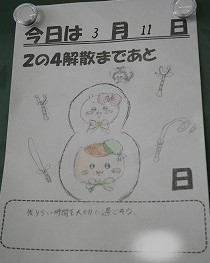 今日は 3 月 11 日
2の4解散まであと
8 日
残り少い時間を大切に過ごそう。